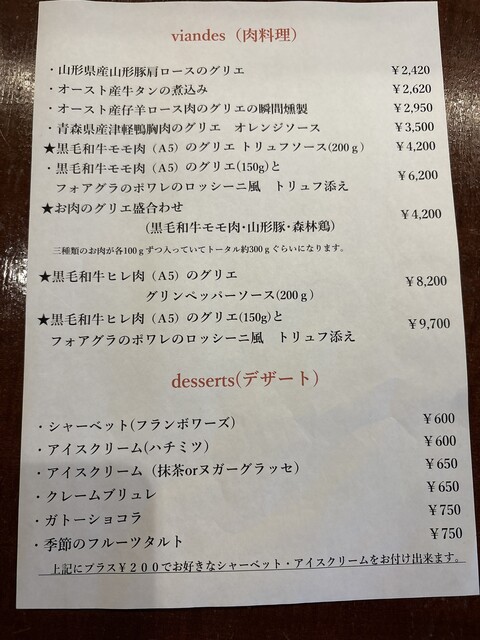 viandes（肉料理）
・山形県産山形豚肩ロースのグリエ ￥2,420
・オースト産牛タンの煮込み ￥2,620
・オースト産仔羊ロース肉のグリエの瞬間燻製 ￥2,950
・青森県産津軽鴨胸肉のグリエ　オレンジソース ￥3,500
★黒毛和牛モモ肉（A5）のグリエ トリュフソース(200ｇ) ￥4,200
・黒毛和牛モモ肉（A5）のグリエ(150g)と
フォアグラのポワレのロッシーニ風　トリュフ添え ￥6,200
★お肉のグリエ盛合わせ ￥4,200
（黒毛和牛モモ肉・山形豚・森林鶏）
三種類のお肉が各100ｇずつ入っていてトータル約300ｇぐらいになります。
★黒毛和牛ヒレ肉（A5）のグリエ ￥8,200
グリンペッパーソース(200ｇ)
★黒毛和牛ヒレ肉（A5）のグリエ(150g)と ￥9,700
フォアグラのポワレのロッシーニ風　トリュフ添え
desserts(デザート)
・シャーベット(フランボワーズ) ￥600
・アイスクリーム(ハチミツ) ￥600
・アイスクリーム（抹茶orヌガーグラッセ） ￥650
・クレームブリュレ ￥650
・ガトーショコラ ￥750
・季節のフルーツタルト ￥750
上記にプラス￥２００でお好きなシャーベット・アイスクリームをお付け出来ます。